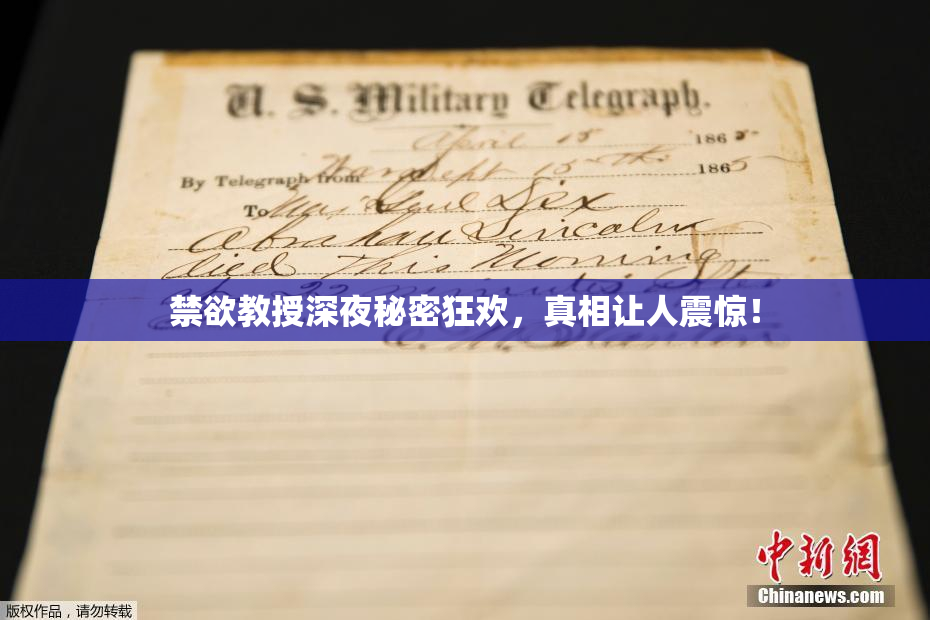 U. S. Military Telegraph.
April 15 1865
By Telegraph from War Dept 15th 1865
To Maj Genl Dix
Abraham Lincoln
died This Morning
at 22 minutes after
禁欲教授深夜秘密狂欢，真相让人震惊！
E. M. Stanton
中新网
Chinanews.com
版权作品，请勿转载